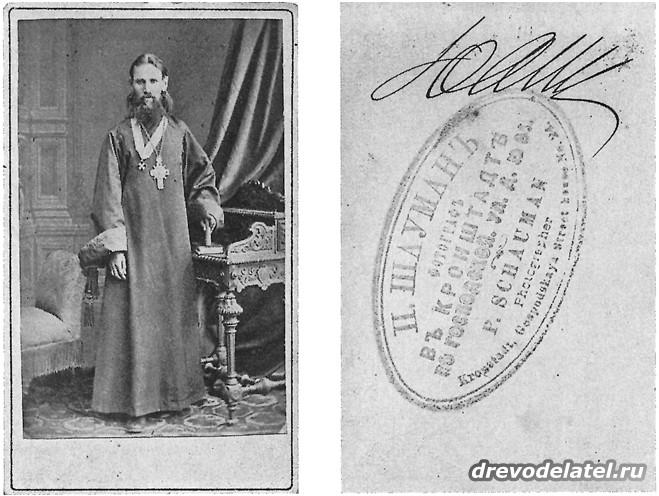 П. ШАУМАНЪ
ФОТОГРАФЪ
ВЪ КРОНШТАДТѢ
ПО ГОСПОДСКОЙ УЛ. Д.
P. SCHAUMAN
Photographer
Kronstadt, Gospodskaya Street house No.
drevodelatel.ru